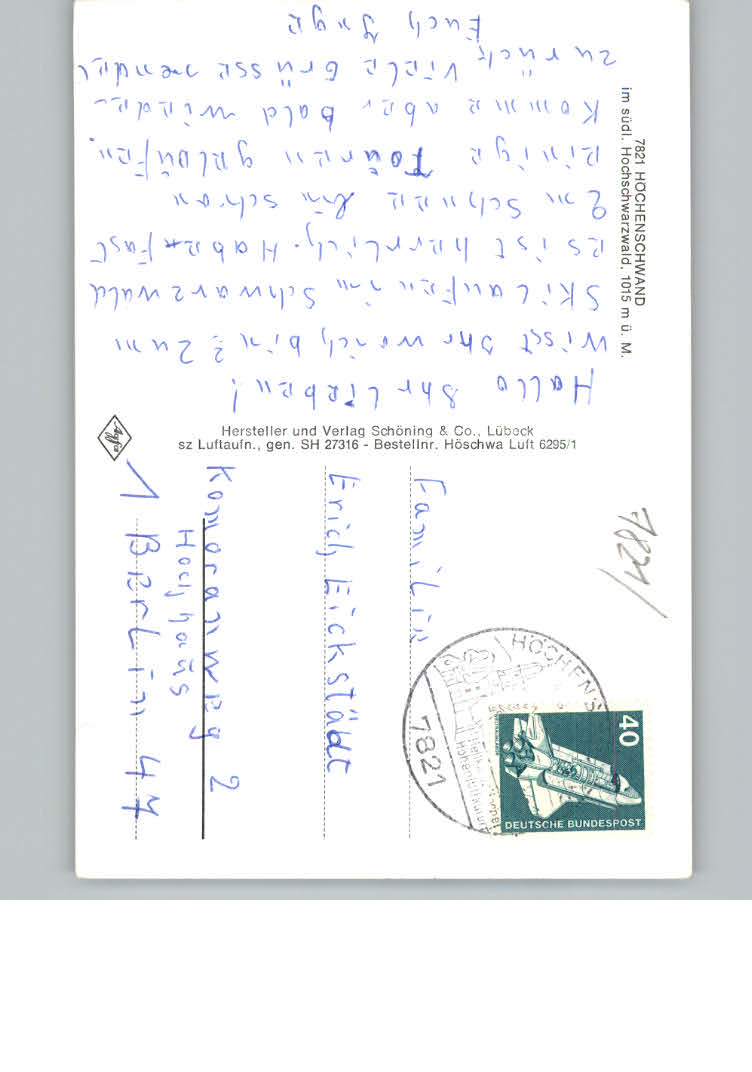 7821 HÖCHENSCHWAND
im südl. Hochschwarzwald, 1015 m ü. M.
Hallo Ihr Lieben!
Wisst Ihr wo ich bin? Zum
Skilaufen im Schwarzwald
es ist herrlich. Habe fast
2m Schnee bin schon
einige Touren gelaufen.
Komme aber bald wieder
zurück viele Grüsse sendet
Euch Inge
Hersteller und Verlag Schöning & Co., Lübeck
sz Luftaufn., gen. SH 27316 - Bestellnr. Höschwa Luft 6295/1
Agfa
7821
HÖCHENS
7821
Höhenluftkurort
40
DEUTSCHE BUNDESPOST
Familie
Erich Eickstädt
Komoranweg 2
Hochhaus
1 Berlin 47